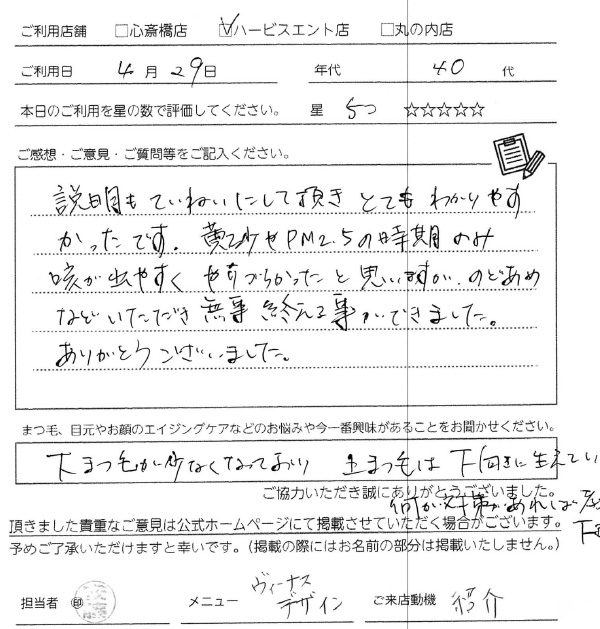 ご利用店舗 □心斎橋店 ☑ハービスエント店 □丸の内店
ご利用日 4月29日 年代 40代
本日のご利用を星の数で評価してください。 星 5つ ☆☆☆☆☆
ご感想・ご意見・ご質問等をご記入ください。
説明もていねいにして頂き とても わかりやす
かったです。黄砂やPM2.5の時期のみ
咳が出やすく やりづらかったと思いますが、のどあめ
などいただき 無事 終える事ができました。
ありがとうございました。
まつ毛、目元やお顔のエイジングケアなどのお悩みや今一番興味があることをお聞かせください。
下まつ毛が少なくなっており 上まつ毛は 下向きに生えてい
ご協力いただき誠にありがとうございました。
何か対策があれば
頂きました貴重なご意見は公式ホームページにて掲載させていただく場合がございます。
予めご了承いただけますと幸いです。(掲載の際にはお名前の部分は掲載いたしません。)
担当者 ㊞ メニュー ヴィーナスデザイン ご来店動機 紹介